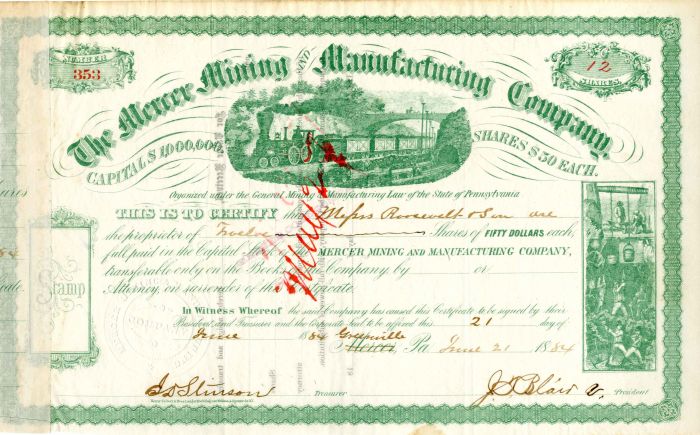 NUMBER
353
12
SHARES.
The Mercer Mining AND Manufacturing Company.
CAPITAL $ 1,000,000.
SHARES $ 50 EACH.
Organized under the General Mining & Manufacturing Law of the State of Pennsylvania
THIS IS TO CERTIFY that Messrs Roosevelt & Son are
the proprietor of Twelve Shares of FIFTY DOLLARS each,
full paid in the Capital of the MERCER MINING AND MANUFACTURING COMPANY,
transferable only on the Books of the Company by or
Attorney, on surrender of this Certificate.
In Witness Whereof the said Company has caused this Certificate to be signed by their
President and Treasurer and the Corporate Seal to be affixed this 21 day of
June 1884 Greenville Mercer, Pa June 21 1884
Treasurer
J. T. Blair V. President